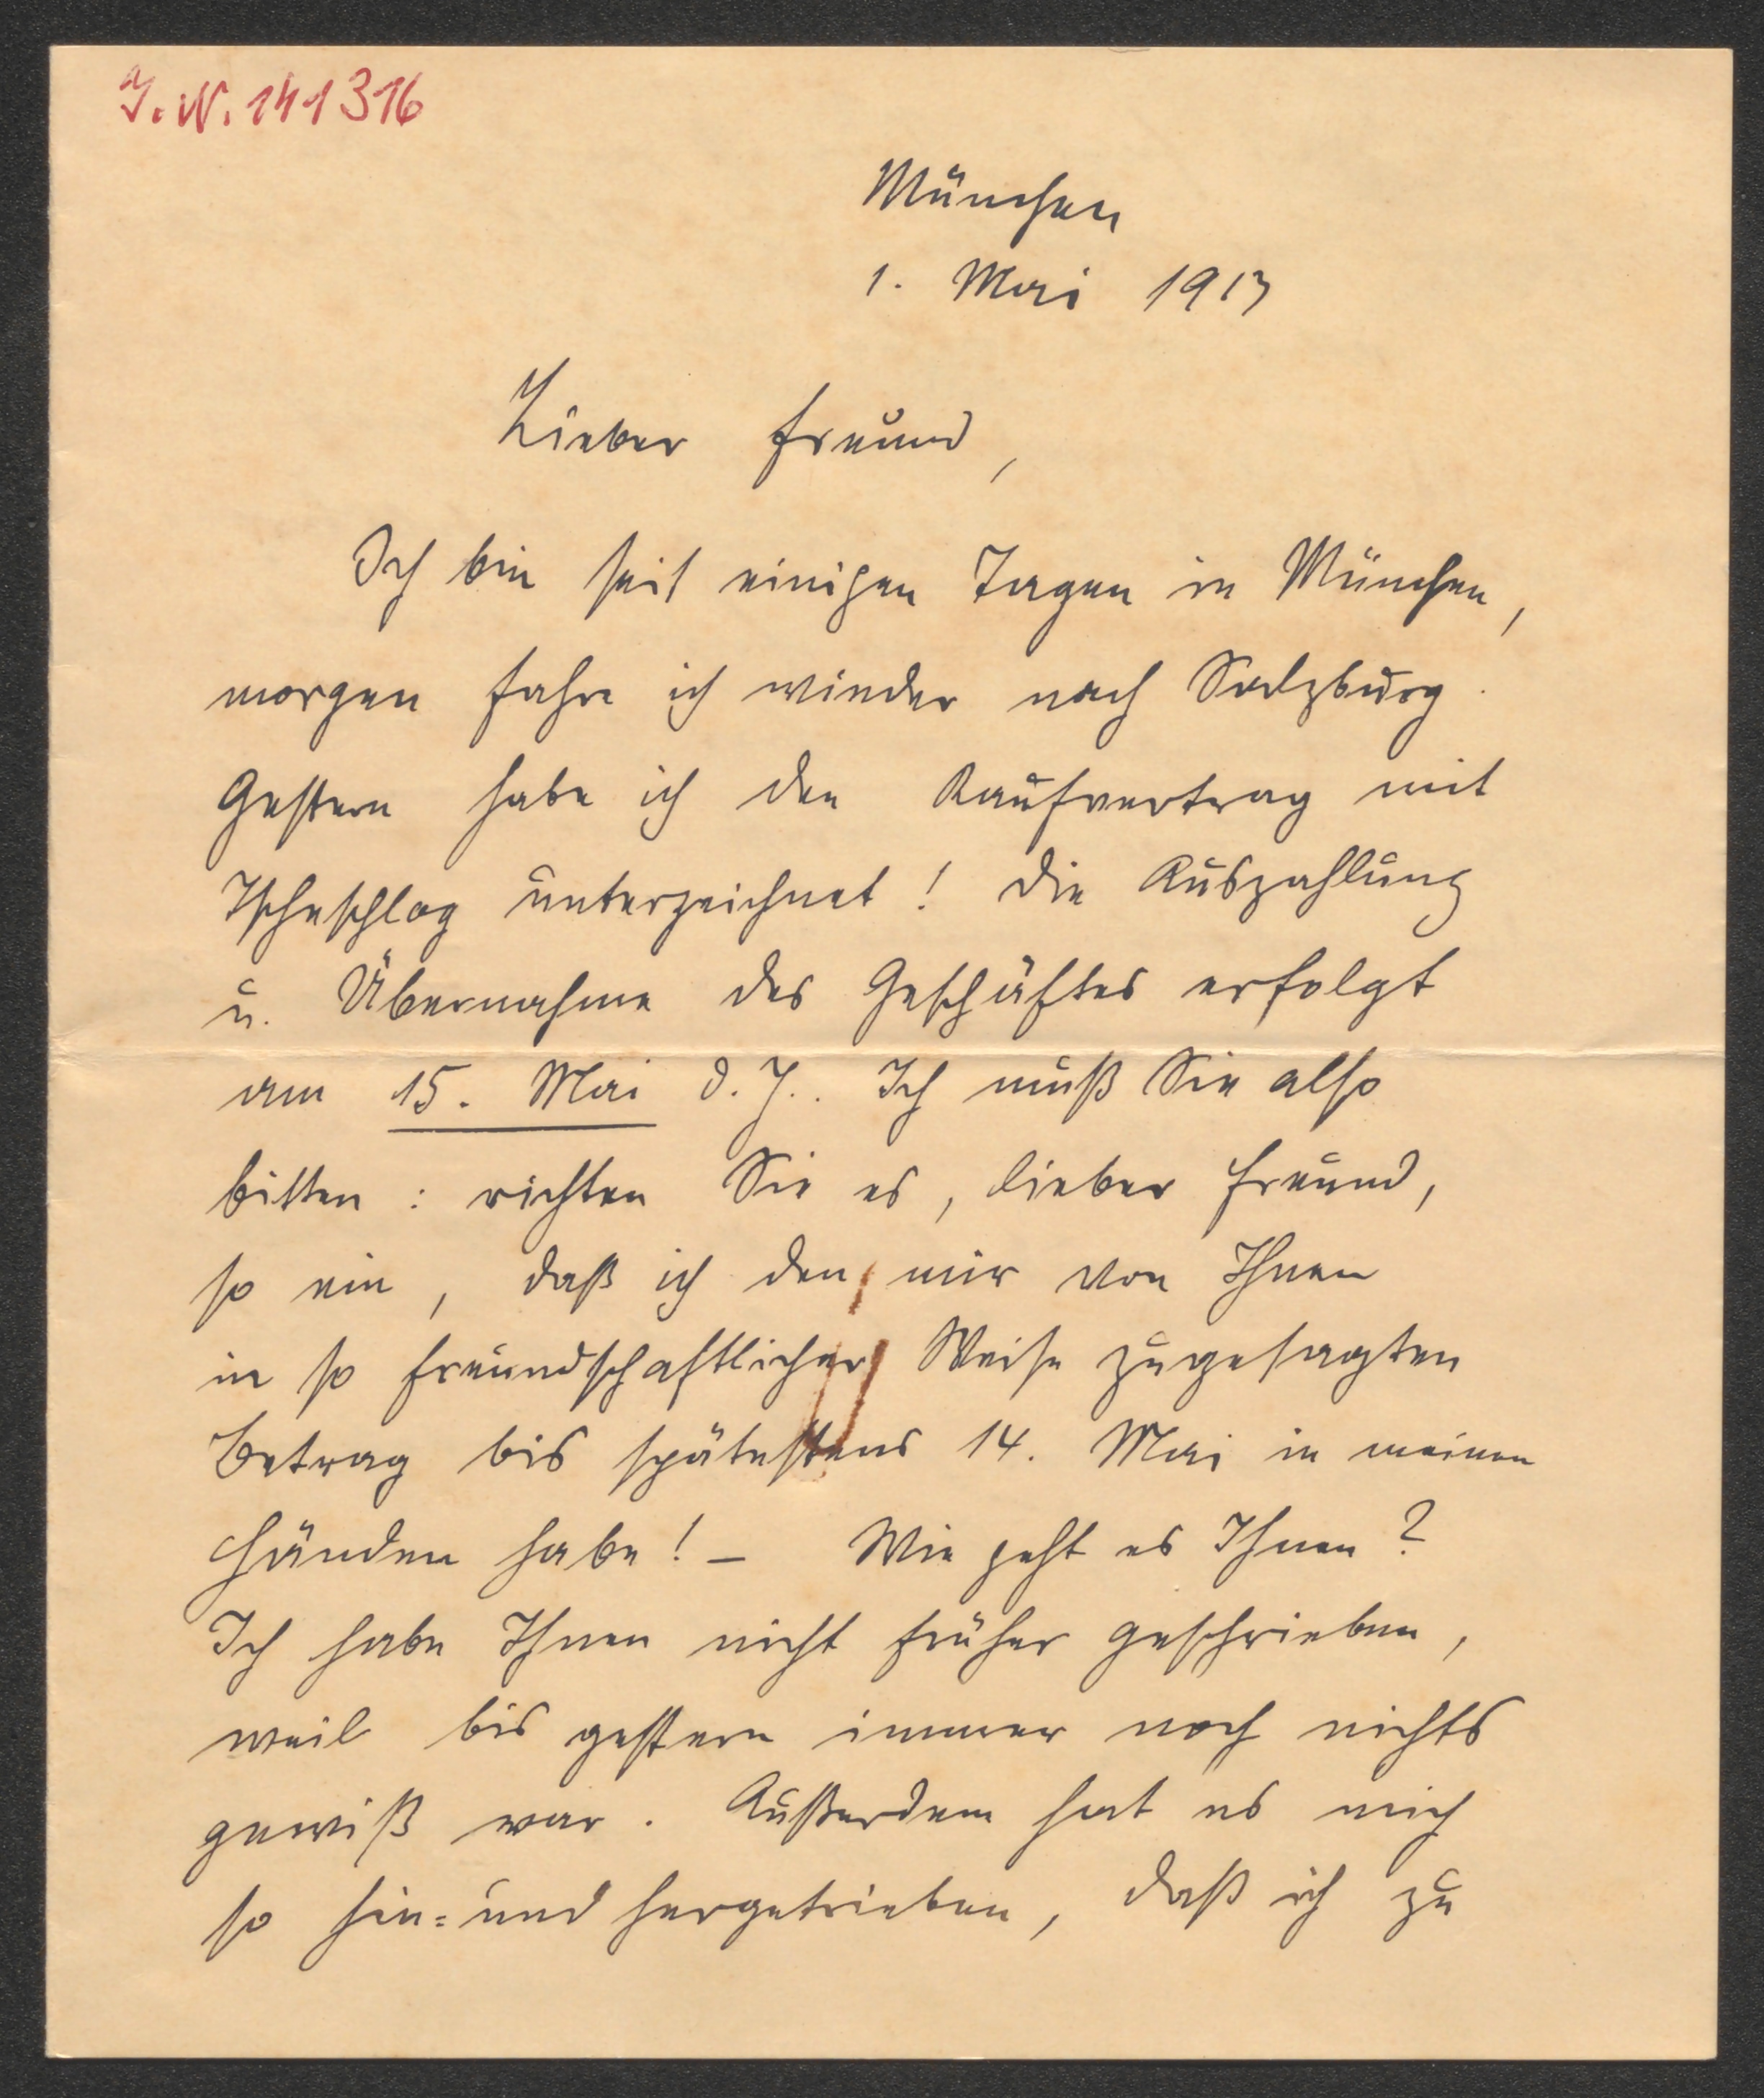 I.N. 141316
München
1. Mai 1913
Lieber Freund,
Ich bin seit einigen Tagen in München,
morgen fahre ich wieder nach Salzburg.
Gestern habe ich den Kaufvertrag mit
unterzeichnet! Die Auszahlung
u. Übernahme des Geschäftes erfolgt
am 15. Mai d. J.. Ich muß Sie also
bitten: richten Sie es, lieber Freund,
so ein, daß ich den, mir von Ihnen
in so freundschaftlicher Weise zugesagten
Betrag bis spätestens 14. Mai in meinen
Händen habe! – Wie geht es Ihnen?
Ich habe Ihnen nicht früher geschrieben,
weil bis gestern immer noch nichts
gewiß war. Außerdem hat es mich
so hin= und hergetrieben, daß ich zu